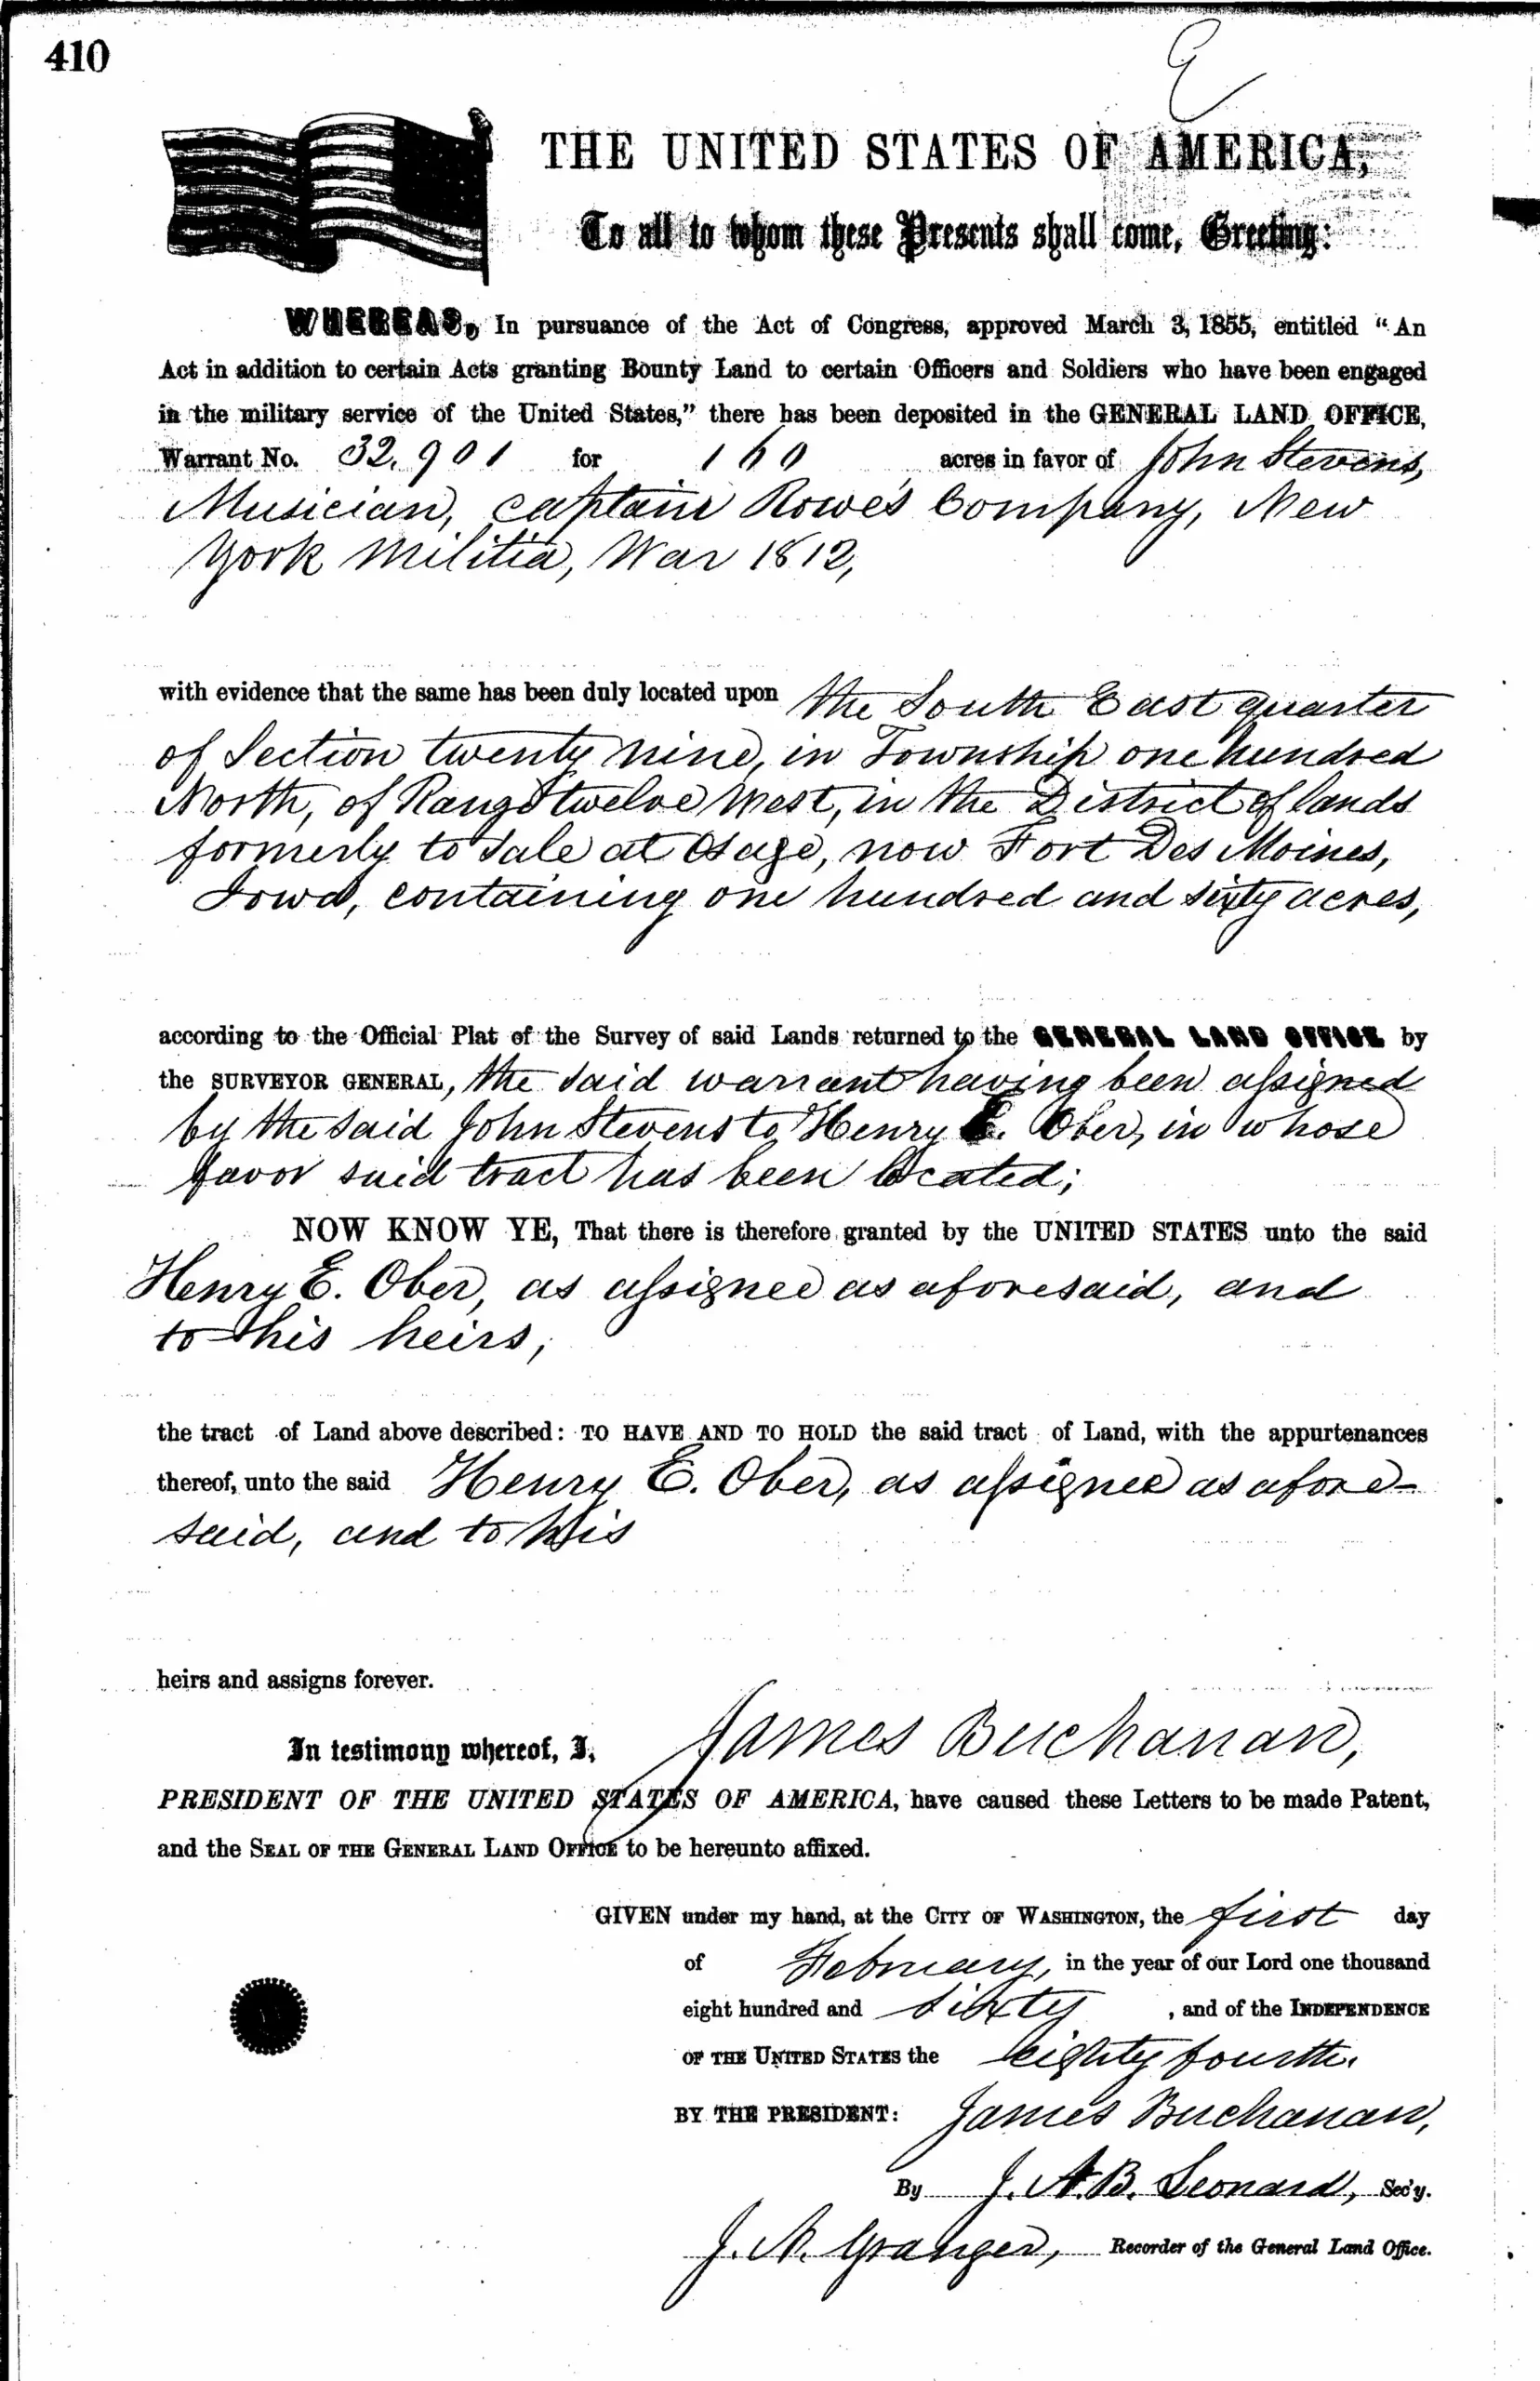 410
E
THE UNITED STATES OF AMERICA,
To all to whom these Presents shall come, Greeting:
WHEREAS, In pursuance of the Act of Congress, approved March 3, 1855, entitled “An
Act in addition to certain Acts granting Bounty Land to certain Officers and Soldiers who have been engaged
in the military service of the United States,” there has been deposited in the GENERAL LAND OFFICE,
Warrant No. 32,901 for 160 acres in favor of John Stevens,
Musician, Captain Rowe's Company, New
York Militia, War 1812,
with evidence that the same has been duly located upon the South East quarter
of Section twenty nine, in Township one hundred
North, of Range twelve West, in the District of lands
formerly to Sale at Osage, now Fort Des Moines,
Iowa, containing one hundred and sixty acres,
according to the Official Plat of the Survey of said Lands returned to the GENERAL LAND OFFICE by
the SURVEYOR GENERAL, the said warrant having been assigned
by the said John Stevens to Henry E. Ober, in whose
favor said tract has been located;
NOW KNOW YE, That there is therefore granted by the UNITED STATES unto the said
Henry E. Ober, as assignee as aforesaid, and
to his heirs,
the tract of Land above described: TO HAVE AND TO HOLD the said tract of Land, with the appurtenances
thereof, unto the said Henry E. Ober, as assignee as afore-
said, and to his
heirs and assigns forever.
In testimony whereof, I, James Buchanan,
PRESIDENT OF THE UNITED STATES OF AMERICA, have caused these Letters to be made Patent,
and the SEAL OF THE GENERAL LAND OFFICE to be hereunto affixed.
GIVEN under my hand, at the CITY OF WASHINGTON, the first day
of February, in the year of our Lord one thousand
eight hundred and sixty, and of the INDEPENDENCE
OF THE UNITED STATES the eighty fourth.
BY THE PRESIDENT: James Buchanan,
By J. A. B. Leonard, Sec'y.
J. N. Granger, Recorder of the General Land Office.